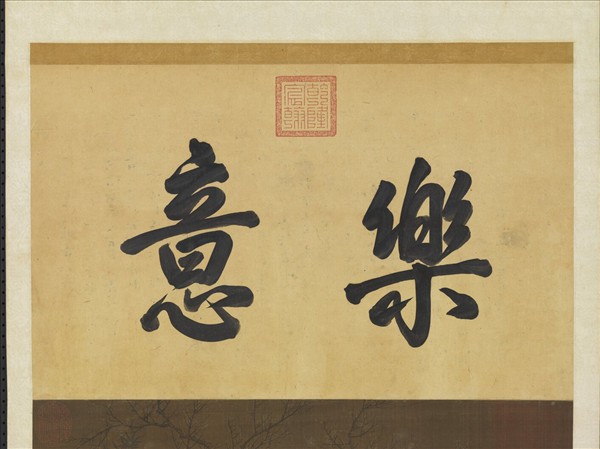 樂意
乾隆宸翰